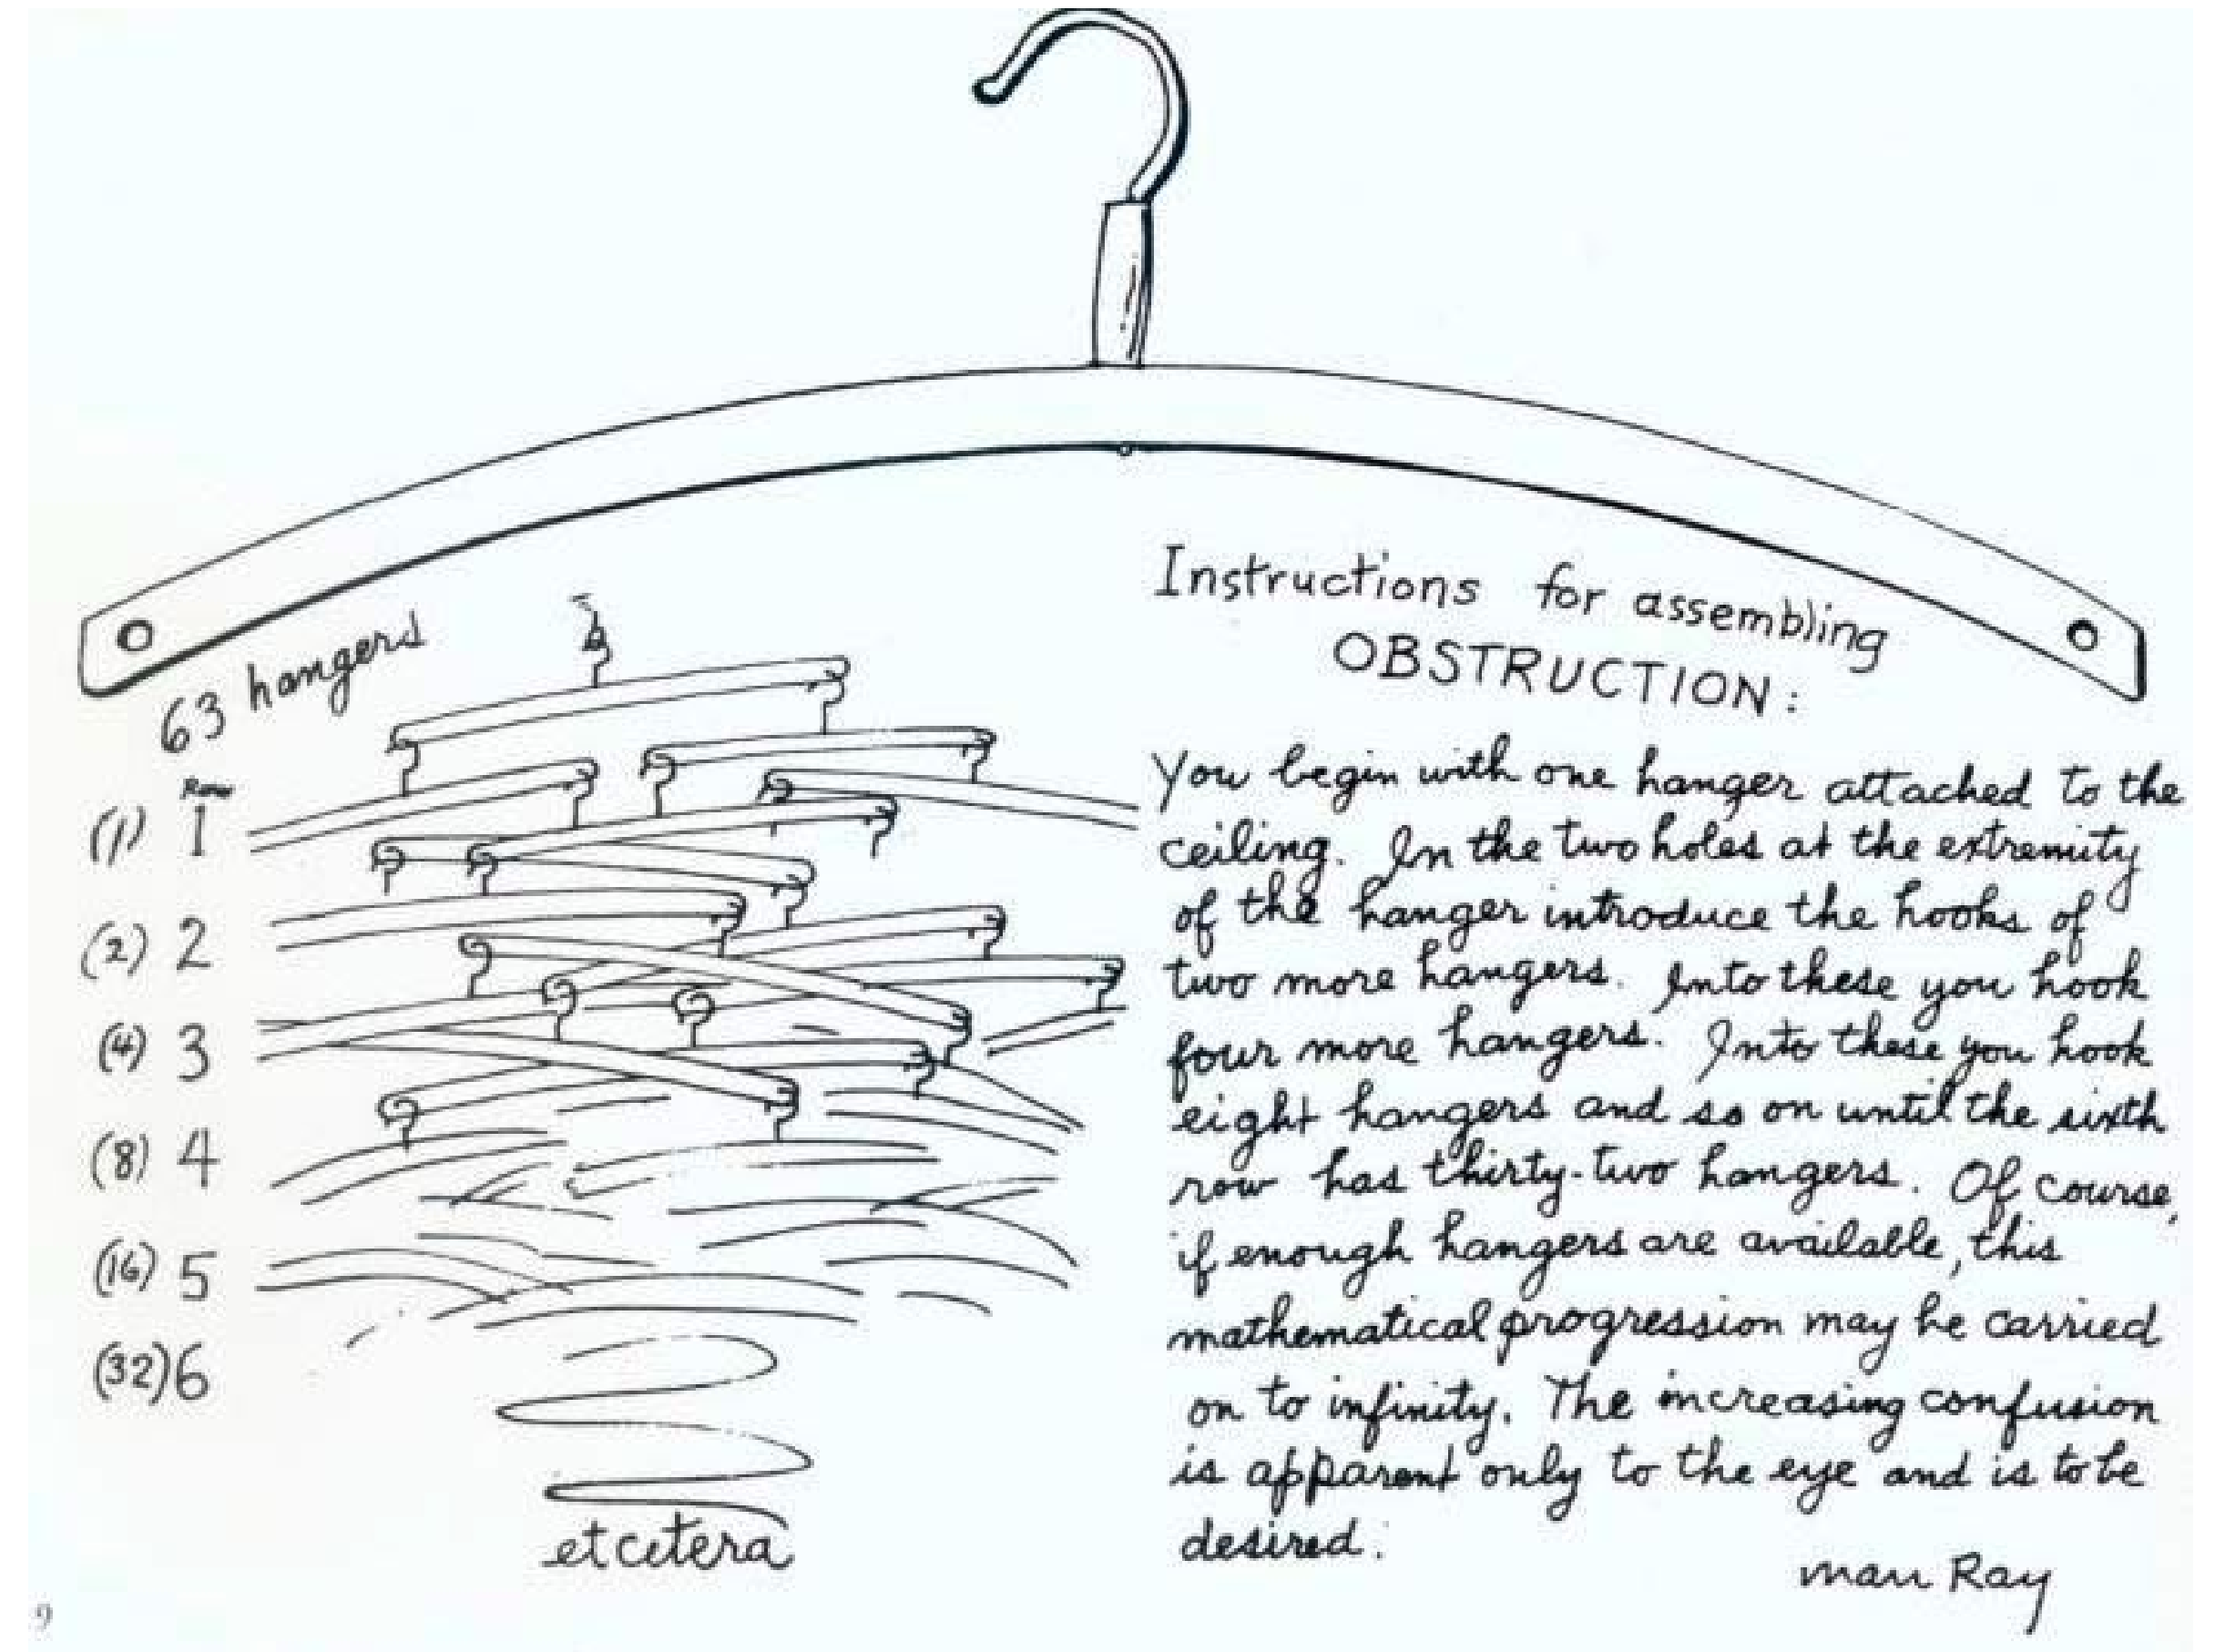 63 hangers
Row
(1) 1
(2) 2
(4) 3
(8) 4
(16) 5
(32) 6
et cetera
Instructions for assembling
OBSTRUCTION:
You begin with one hanger attached to the
ceiling. In the two holes at the extremity
of the hanger introduce the hooks of
two more hangers. Into these you hook
four more hangers. Into these you hook
eight hangers and so on until the sixth
row has thirty-two hangers. Of course,
if enough hangers are available, this
mathematical progression may be carried
on to infinity. The increasing confusion
is apparent only to the eye and is to be
desired.
man Ray